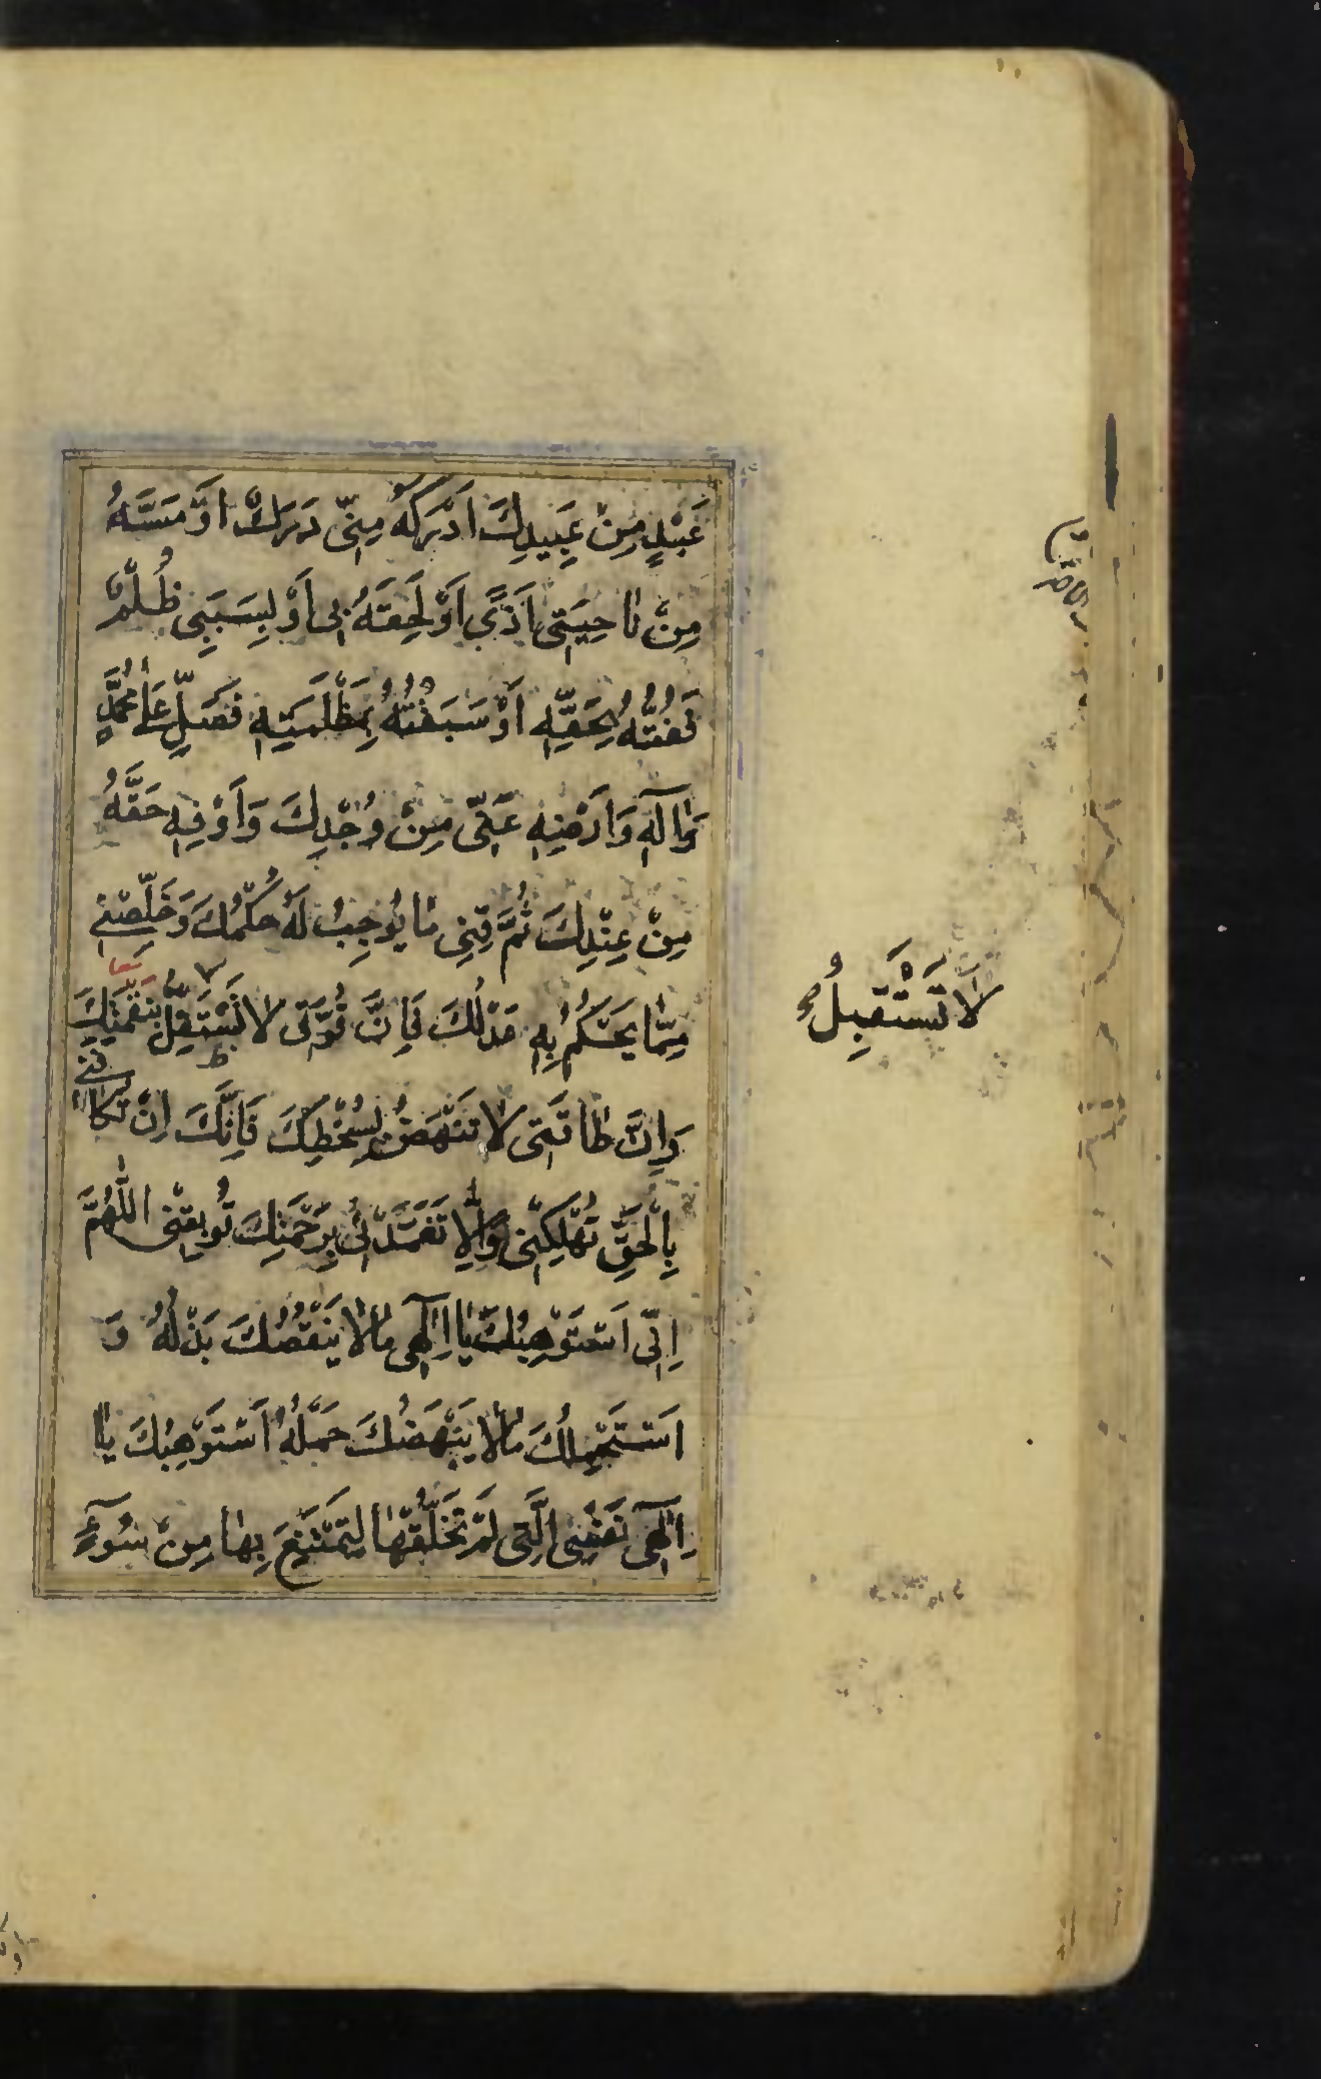 عَبْدٍ مِنْ عَبِيدِكَ اَدْرَكَهُ مِنّى دَرَكٌ اَوْ مَسَّهُ
مِنْ نٰاحِيَتِى اَذًى اَوْ لَحِقَهُ بِى اَوْ بِسَبَبِى ظُلْمٌ
فَفُتُّهُ بِحَقِّهِ اَوْ سَبَقْتُهُ بِمَظْلَمَتِهِ فَصَلِّ عَلٰى مُحَمَّدٍ
وَاٰلِهِ وَاَرْضِهِ عَنّى مِنْ وُجْدِكَ وَاَوْفِهِ حَقَّهُ
مِنْ عِنْدِكَ ثُمَّ قِنِى مٰا يُوجِبُ لَهُ حُكْمُكَ وَخَلِّصْنِى
مِمّٰا يَحْكُمُ بِهِ عَدْلُكَ فَاِنَّ قُوَّتى لا تَسْتَقِلُّ بِنَقِمَتِكَ
وَاِنَّ طٰاقَتى لا تَنْهَضُ بِسُخْطِكَ فَاِنَّكَ اِنْ تُكٰافِنى
بِالْحَقِّ تُهْلِكْنى وَاِلّٰا تَغَمَّدْنى بِرَحْمَتِكَ تُوبِقْنى اَللّٰهُمَّ
اِنّى اَسْتَوْهِبُكَ يٰا اِلٰهى مٰا لٰا يَنْقُصُكَ بَذْلُهُ وَ
اَسْتَحْمِلُكَ مٰا لٰا يَبْهَضُكَ حَمْلُهُ اَسْتَوْهِبُكَ يٰا
اِلٰهى نَفْسِىَ الَّتى لَمْ تَخْلُقْهٰا لِتَمْتَنِعَ بِهٰا مِنْ سُوءٍ
لٰا تَسْتَقْبِلُ